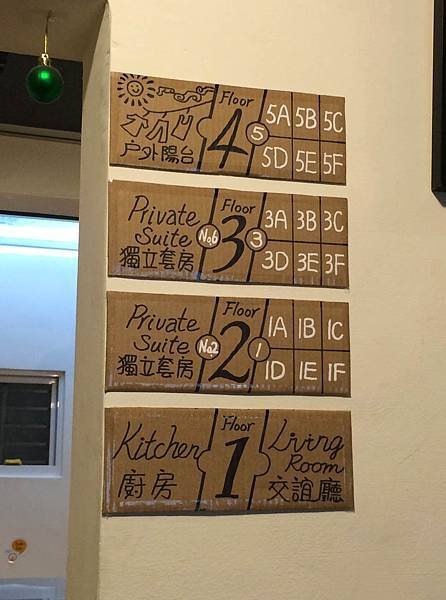 戶外陽台
Floor
4
5
5A 5B 5C
5D 5E 5F
Private
Suite
獨立套房
No6
Floor
3
3
3A 3B 3C
3D 3E 3F
Private
Suite
獨立套房
No2
Floor
2
1
1A 1B 1C
1D 1E 1F
Kitchen
廚房
Floor
1
Living
Room
交誼廳